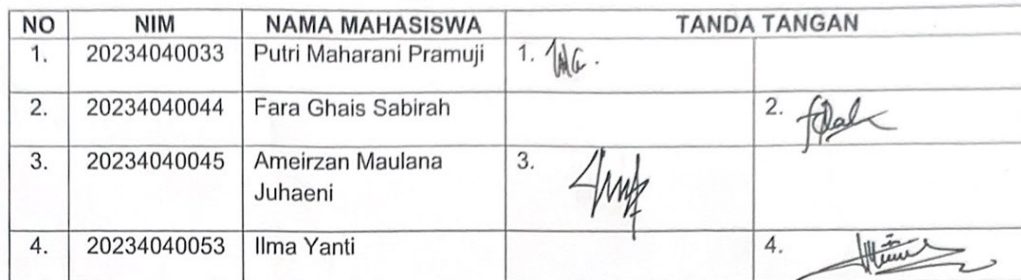 NO NIM NAMA MAHASISWA TANDA TANGAN
1. 20234040033 Putri Maharani Pramuji 1.
2. 20234040044 Fara Ghais Sabirah 2.
3. 20234040045 Ameirzan Maulana 3.
Juhaeni
4. 20234040053 Ilma Yanti 4.